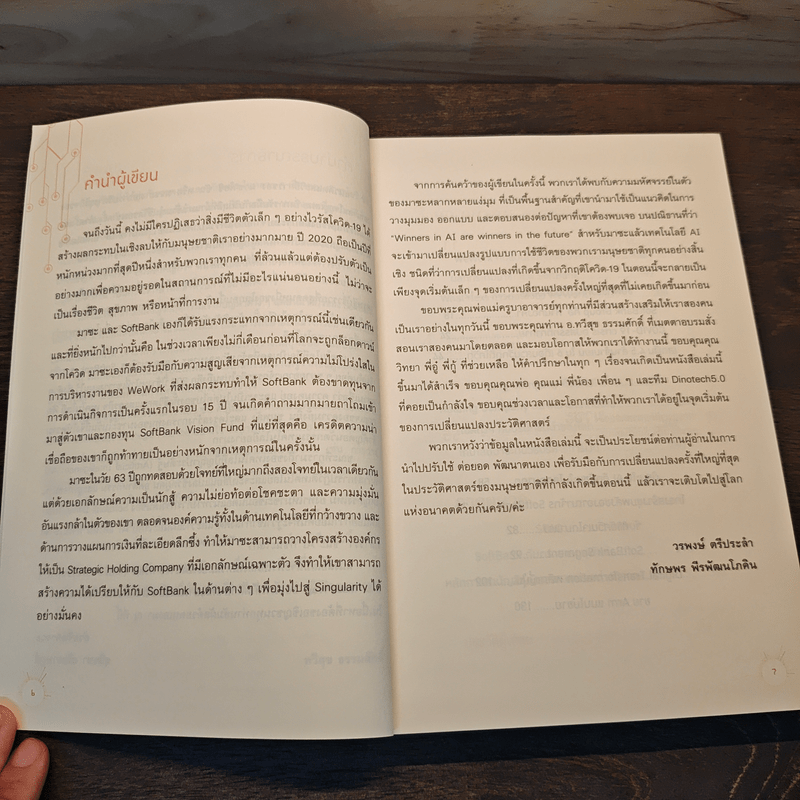 คำนำผู้เขียน
จนถึงวันนี้ คงไม่มีใครปฏิเสธว่าสิ่งมีชีวิตตัวเล็ก ๆ อย่างไวรัสโควิด-19 ได้
สร้างผลกระทบในเชิงลบให้กับมนุษยชาติเราอย่างมากมาย ปี 2020 ถือเป็นปีที่
หนักหน่วงมากที่สุดปีหนึ่งสำหรับพวกเราทุกคน ที่ล้วนแล้วแต่ต้องปรับตัวเป็น
อย่างมากเพื่อความอยู่รอดในสถานการณ์ที่ไม่มีอะไรแน่นอนอย่างนี้ ไม่ว่าจะ
เป็นเรื่องชีวิต สุขภาพ หรือหน้าที่การงาน
มาซะ และ SoftBank เองก็ได้รับแรงกระแทกจากเหตุการณ์นี้เช่นเดียวกัน
และที่ยิ่งหนักไปกว่านั้นคือ ในช่วงเวลาเพียงไม่กี่เดือนก่อนที่โลกจะถูกล็อกดาวน์
จากโควิด มาซะเองก็ต้องรับมือกับความสูญเสียจากเหตุการณ์ความไม่โปร่งใสใน
การบริหารงานของ WeWork ที่ส่งผลกระทบทำให้ SoftBank ต้องขาดทุนจาก
การดำเนินกิจการเป็นครั้งแรกในรอบ 15 ปี จนเกิดคำถามมากมายถาโถมเข้า
มาสู่ตัวเขาและกองทุน SoftBank Vision Fund ที่แย่ที่สุดคือ เครดิตความน่า
เชื่อถือของเขาก็ถูกท้าทายเป็นอย่างหนักจากเหตุการณ์ในครั้งนั้น
มาซะในวัย 63 ปีถูกทดสอบด้วยโจทย์ที่ใหญ่มากถึงสองโจทย์ในเวลาเดียวกัน
แต่ด้วยเอกลักษณ์ความเป็นนักสู้ ความไม่ย่อท้อต่อโชคชะตา และความมุ่งมั่น
อันแรงกล้าในตัวของเขา ตลอดจนองค์ความรู้ทั้งในด้านเทคโนโลยีที่กว้างขวาง และ
ด้านการวางแผนการเงินที่ละเอียดลึกซึ้ง ทำให้มาซะสามารถวางโครงสร้างองค์กร
ให้เป็น Strategic Holding Company ที่มีเอกลักษณ์เฉพาะตัว จึงทำให้เขาสามารถ
สร้างความได้เปรียบให้กับ SoftBank ในด้านต่าง ๆ เพื่อมุ่งไปสู่ Singularity ได้
อย่างมั่นคง
๖
จากการค้นคว้าของผู้เขียนในครั้งนี้ พวกเราได้พบกับความมหัศจรรย์ในตัว
ของมาซะหลากหลายแง่มุม ที่เป็นพื้นฐานสำคัญที่เขานำมาใช้เป็นแนวคิดในการ
วางมุมมอง ออกแบบ และตอบสนองต่อปัญหาที่เขาต้องพบเจอ บนปณิธานที่ว่า
"Winners in AI are winners in the future" สำหรับมาซะแล้วเทคโนโลยี AI
จะเข้ามาเปลี่ยนแปลงรูปแบบการใช้ชีวิตของพวกเรามนุษยชาติทุกคนอย่างสิ้น
เชิง ชนิดที่ว่าการเปลี่ยนแปลงที่เกิดขึ้นจากวิกฤติโควิด-19 ในตอนนี้จะกลายเป็น
เพียงจุดเริ่มต้นเล็ก ๆ ของการเปลี่ยนแปลงครั้งใหญ่ที่สุดที่ไม่เคยเกิดขึ้นมาก่อน
ขอบพระคุณพ่อแม่ครูบาอาจารย์ทุกท่านที่มีส่วนสร้างเสริมให้เราสองคน
เป็นเราอย่างในทุกวันนี้ ขอบพระคุณท่าน อ.ทวีสุข ธรรมศักดิ์ ที่เมตตาอบรมสั่ง
สอนเราสองคนมาโดยตลอด และมอบโอกาสให้พวกเราได้ทำงานนี้ ขอบคุณคุณ
วิทยา พี่อู๋ พี่กู้ ที่ช่วยเหลือ ให้คำปรึกษาในทุก ๆ เรื่องจนเกิดเป็นหนังสือเล่มนี้
ขึ้นมาได้สำเร็จ ขอบคุณคุณพ่อ คุณแม่ พี่น้อง เพื่อน ๆ และทีม Dinotech5.0
ที่คอยเป็นกำลังใจ ขอบคุณช่วงเวลาและโอกาสที่ทำให้พวกเราได้อยู่ในจุดเริ่มต้น
ของการเปลี่ยนแปลงประวัติศาสตร์
พวกเราหวังว่าข้อมูลในหนังสือเล่มนี้ จะเป็นประโยชน์ต่อท่านผู้อ่านในการ
นำไปปรับใช้ ต่อยอด พัฒนาตนเอง เพื่อรับมือกับการเปลี่ยนแปลงครั้งที่ใหญ่ที่สุด
ในประวัติศาสตร์ของมนุษยชาติที่กำลังเกิดขึ้นตอนนี้ แล้วเราจะเติบโตไปสู่โลก
แห่งอนาคตด้วยกันครับ/ค่ะ
วรพงษ์ ตรีประลำ
ทักษพร พีรพัฒนโภคิน
7